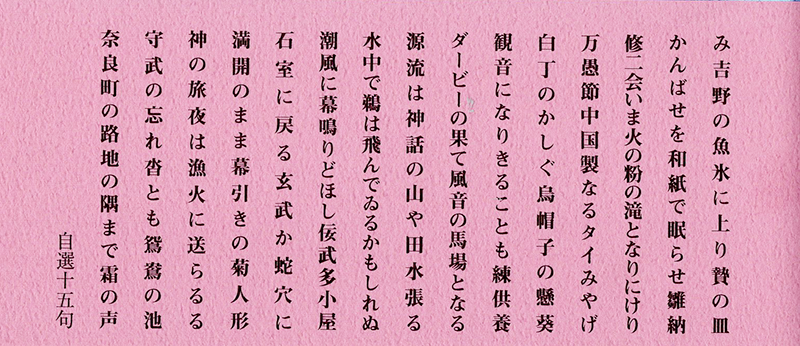 み吉野の魚氷に上り贄の皿
かんばせを和紙で眠らせ雛納
修二会いま火の粉の滝となりにけり
万愚節中国製なるタイみやげ
白丁のかしぐ烏帽子の懸葵
観音になりきることも練供養
ダービーの果て風音の馬場となる
源流は神話の山や田水張る
水中で鵜は飛んでゐるかもしれぬ
潮風に幕鳴りどほし佞武多小屋
石室に戻る玄武か蛇穴に
満開のまま幕引きの菊人形
神の旅夜は漁火に送らるる
守武の忘れ沓とも鴛鴦の池
奈良町の路地の隅まで霜の声
自選十五句